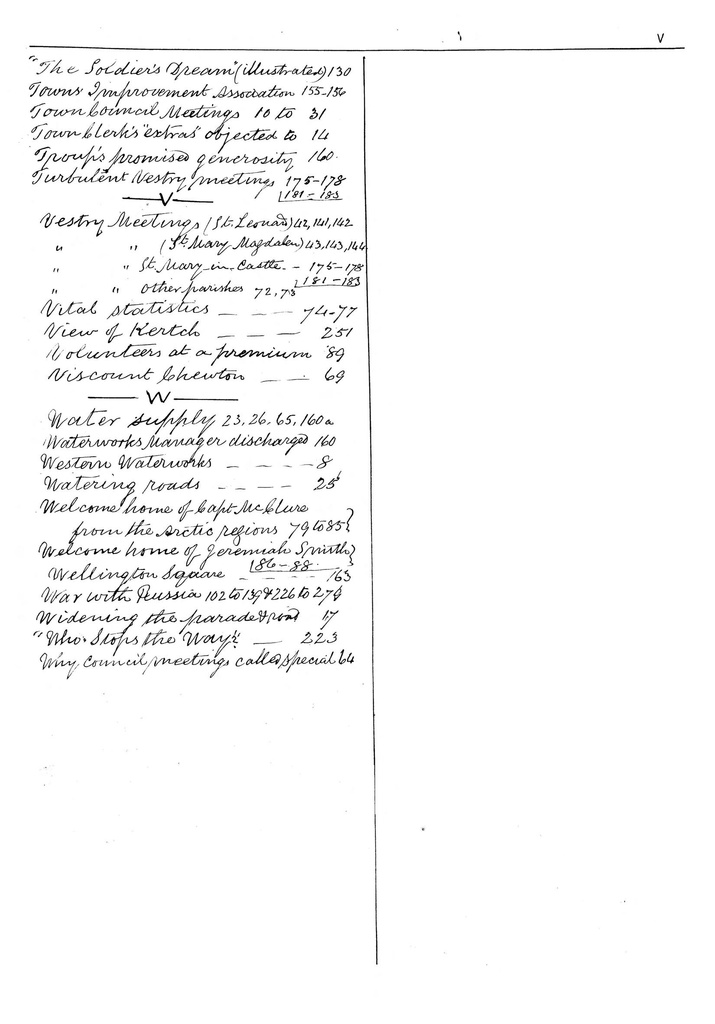 V
"The Soldier's Dream" (illustrated) 130
Towns Improvement Association 155-156
Town Council Meetings 10 to 31
Town Clerk's "extras" objected to 14
Troup's promised generosity 160.
Turbulent Vestry meetings 175-178
181-183
— V —
Vestry Meetings (St. Leonard) 42, 141, 142
" " (St. Mary Magdalen) 43, 143, 144
" " St. Mary-in-Castle - 175-178
181-183
" " Other parishes 72, 73
Vital statistics — — — 74-77
View of Kertch — — — 251
Volunteers at a premium 89
Viscount Chewton — — 69
— W —
Water supply 23, 26, 65, 160a
Waterworks Manager discharged 160
Western Waterworks - - - - 8
Watering roads - - - - 25
Welcome home of Capt. McClure
from the Arctic regions 79 to 85}
Welcome home of Jeremiah Smith}
86-88
Wellington Square - - - - 163
War with Russia 102 to 139 & 226 to 274
Widening the parade & road 17
"Who Stops the Way" — 223
Why Council meetings called special 64